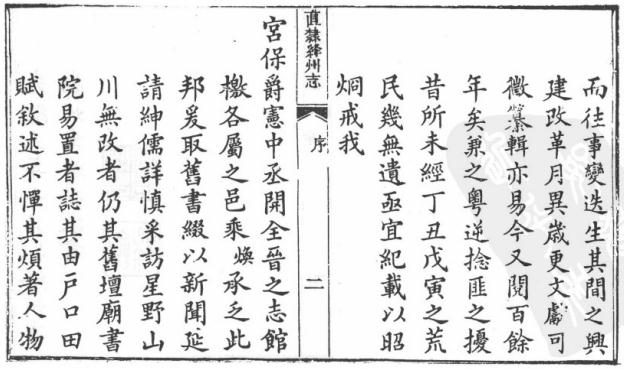 而往事變迭生其間之興
建改革月異歲更文獻可
徵纂輯亦易今又閱百餘
年矣兼之粤逆捻匪之擾
昔所未經丁丑戊寅之荒
民幾無遺亟宜紀載以昭
炯戒我
直隸絳州志
序
二
宮保爵憲中丞開全晉之志館
檄各屬之邑乘煥承乏此
邦爰取舊書綴以新聞延
請紳儒詳慎采訪星野山
川無改者仍其舊壇廟書
院易置者誌其由戶口田
賦敘述不憚其煩著人物